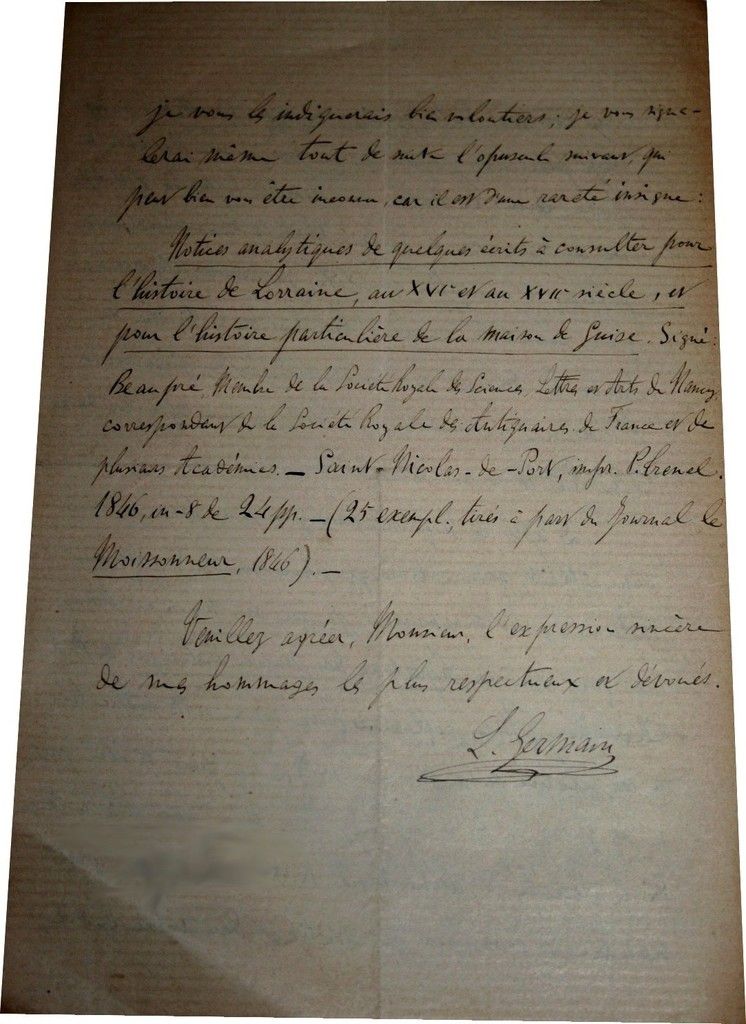 je vous les indiquerais bien volontiers ; je vous signa-
lerai même tout de suite l'opuscule suivant, qui
peut bien vous être inconnu, car il est d'une rareté insigne :
Notices analytiques de quelques écrits à consulter pour
l'histoire de Lorraine, au XVIe et au XVIIe siècle, et
pour l'histoire particulière de la maison de Guise. Signé :
Beaupré, Membre de la Société Royale des Sciences, Lettres et Arts de Nancy,
correspondant de la Société Royale des Antiquaires de France et de
plusieurs Académies. — Saint-Nicolas-de-Port, impr. P. Trenel.
1846, in-8 de 24 pp. — (25 exempl., tirés à part du Journal le
Moissonneur, 1846). —
Veuillez agréer, Monsieur, l'expression sincère
de mes hommages les plus respectueux et dévoués.
L. Germain